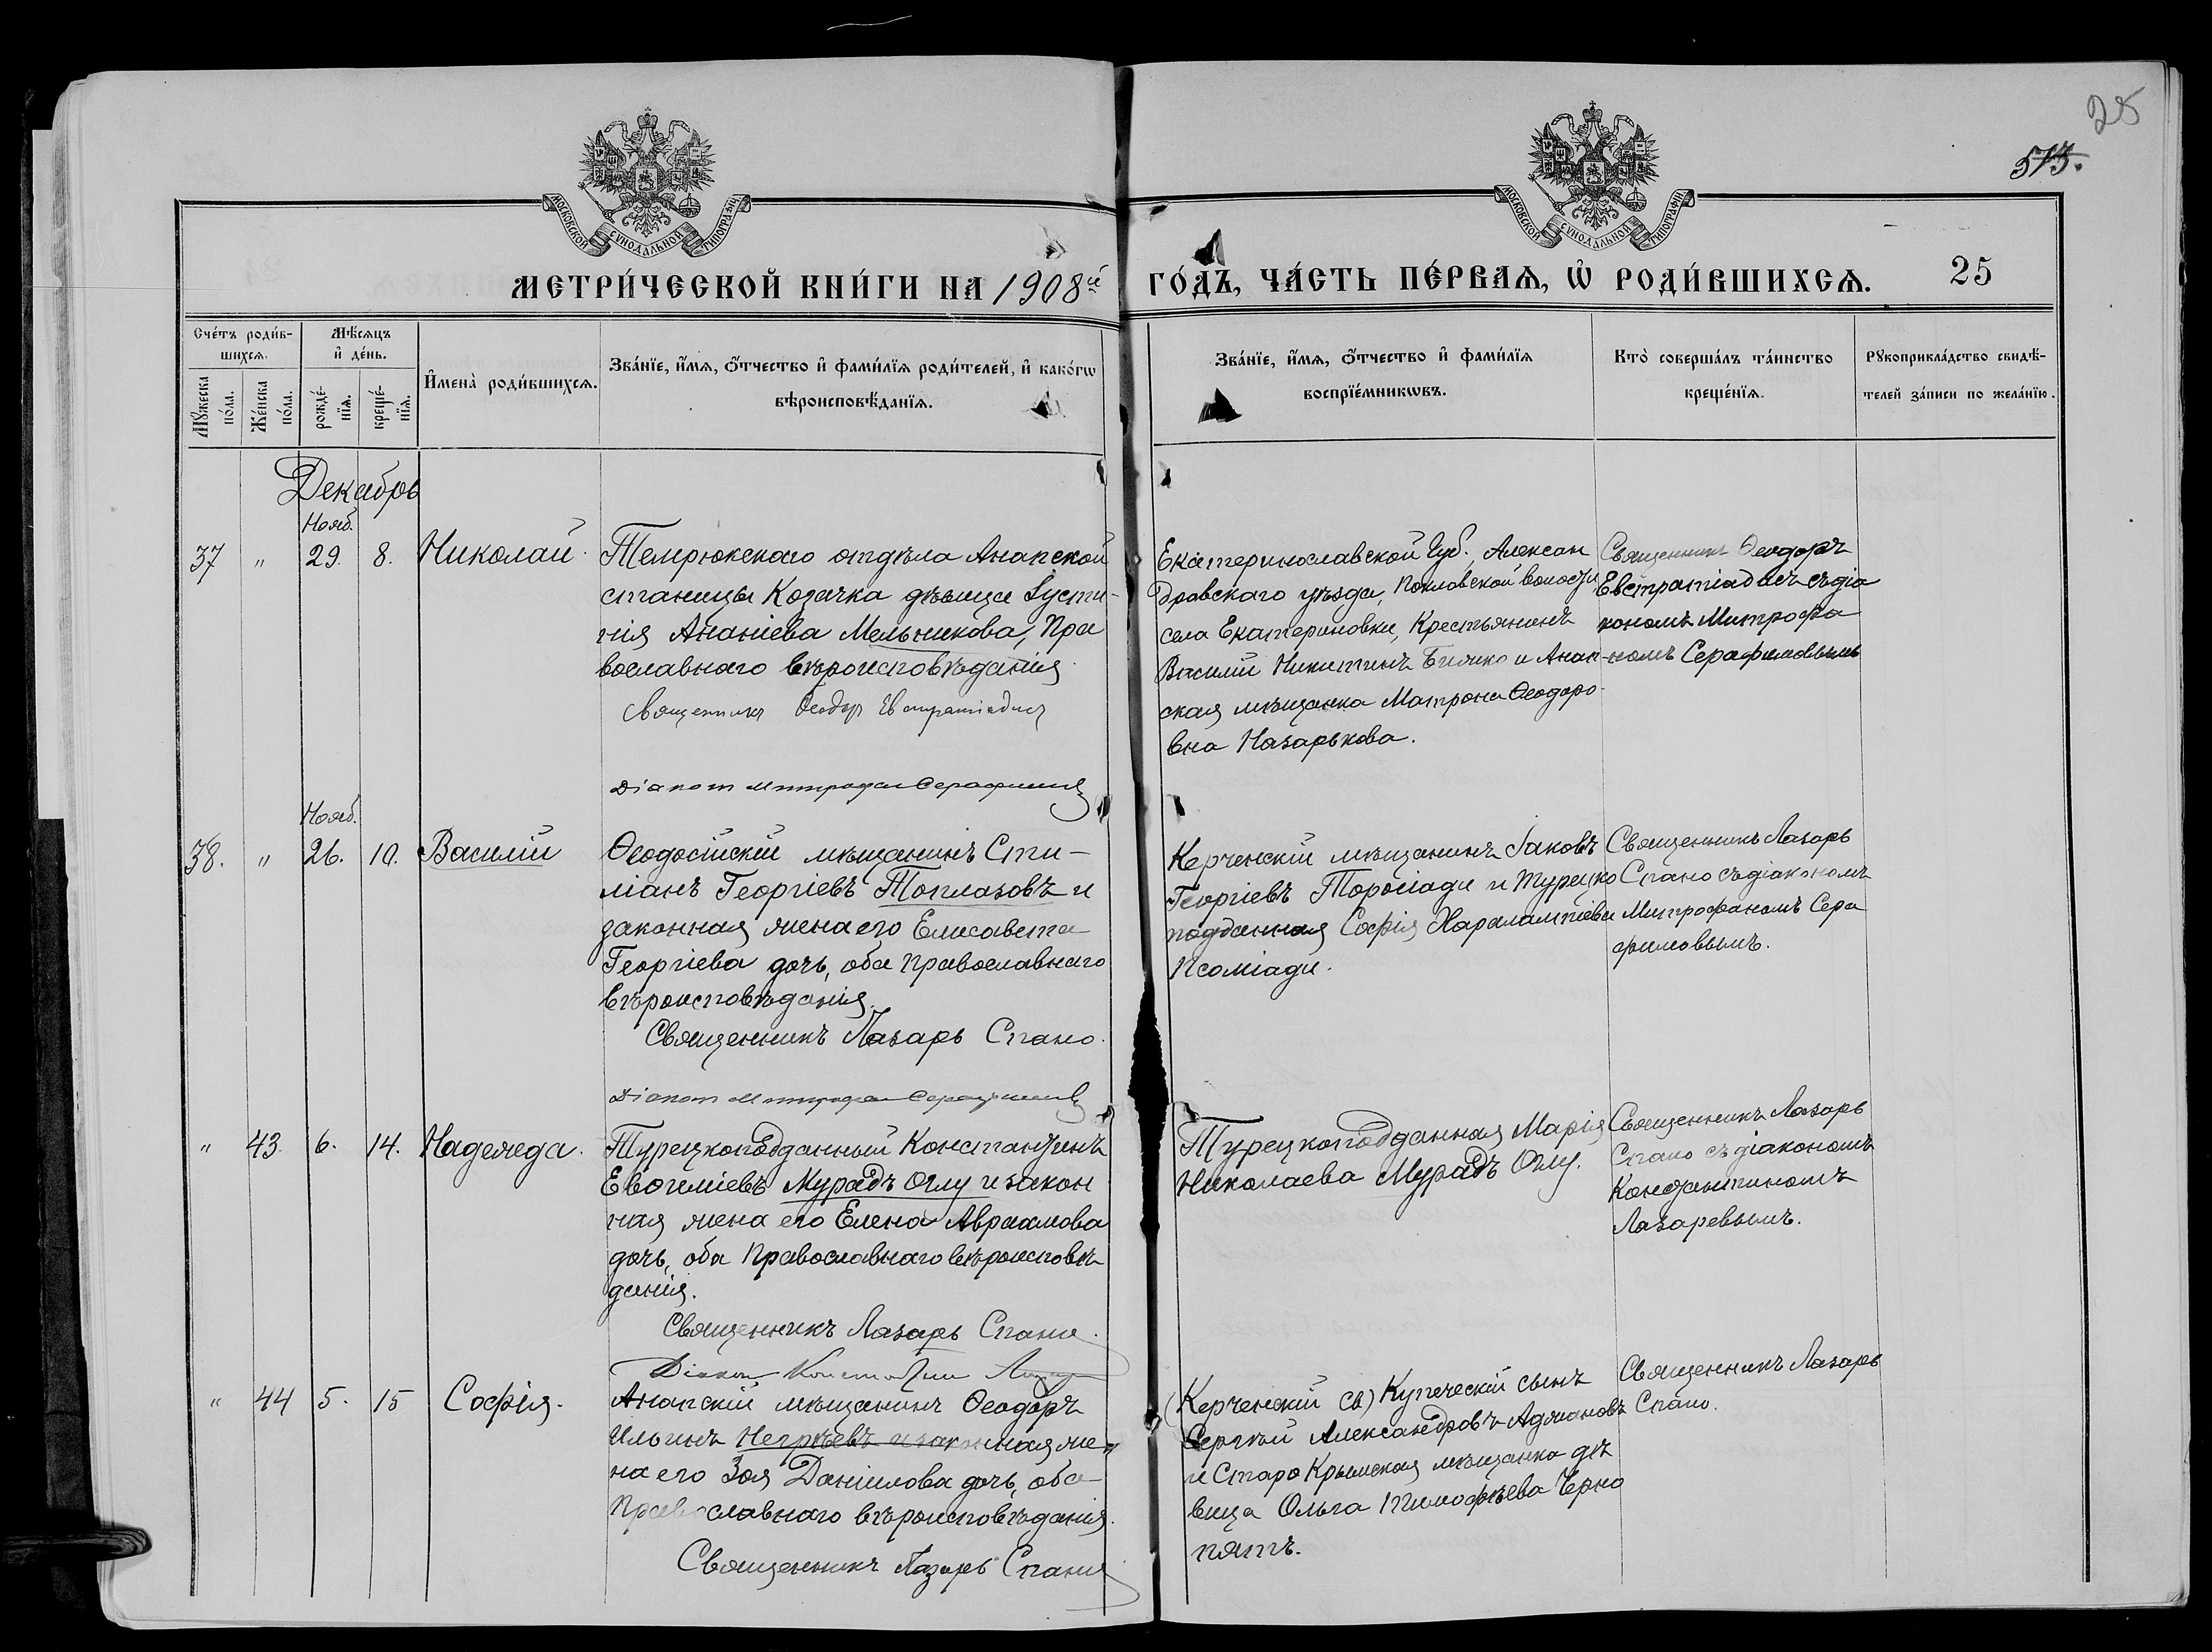 25
513.
МОСКОВСКОЙ СѴНОДАЛЬНОЙ ТИПОГРАФІИ
МОСКОВСКОЙ СѴНОДАЛЬНОЙ ТИПОГРАФІИ
МЕТРИ́ЧЕСКОЙ КНИ́ГИ НА 1908й ГО́ДЪ, ЧА́СТЬ ПЕ́РВАѦ, Ѡ҆ РОДИ́ВШИХСѦ. 25
Сче́тъ роди́в-
шихсѧ.
Мꙋ́жеска
по́ла.
Же́нска
по́ла.
Мѣ́сѧцъ
и҆ де́нь.
рожде́-
нїѧ.
креще́-
нїѧ.
И҆мена̀ роди́вшихсѧ.
Зва́нїе, и҆́мѧ, ѻ҆́тчество и҆ фами́лїѧ роди́телей, и҆ како́гѡ
вѣроисповѣ́данїѧ.
Зва́нїе, и҆́мѧ, ѻ҆́тчество и҆ фами́лїѧ
воспрїе́мникѡвъ.
Кто̀ соверша́лъ та́инство
креще́нїѧ.
Рꙋкоприкла́дство свидѣ́-
телей за́писи по жела́нїю.
Декабрь
Нояб.
37 " 29. 8. Николай
Темрюкскаго отдѣла Анапской
станицы Козачка дѣвица Іусти-
нія Ананіева Мельникова, Пра
вославнаго вѣроисповѣданія
Священникъ Ѳеодоръ Евстратіадисъ
Діаконъ Митрофанъ Серафимовъ
Екатеринославской Губ. Алексан
дровскаго уѣзда, Покловской волости
села Екатериновки, Крестьянинъ
Василій Никитинъ и Анап-
ская мѣщанка Матрона Ѳеодоро-
вна Назарькова.
Священникъ Ѳеодоръ
Евстратіадисъ съ діа
кономъ Митрофа
номъ Серафимовымъ
Нояб.
38. " 26. 10. Василій
Ѳеодосійскій мѣщанинъ Сти-
ліанъ Георгіевъ Топмазовъ и
законная жена его Елисавета
Георгіева дочь, оба Православнаго
вѣроисповѣданія.
Священникъ Лазарь Спано.
Діаконъ Митрофанъ Серафимовъ
Керченскій мѣщанинъ Іаковъ
Георгіевъ Торосіади и Турецко
подданная Софія Харалампіева
Псоміади.
Священникъ Лазарь
Спано съ діакономъ
Митрофаномъ Сера
фимовымъ.
" 43. 6. 14. Надежда.
Турецкоподданный Константинъ
Евѳиміевъ Мурадъ Оглу и закон
ная жена его Елена Авраамова
дочь, оба Православнаго вѣроисповѣ
данія.
Священникъ Лазарь Спано.
Діаконъ Константинъ
Турецкоподданная Марія
Николаева Мурадъ Оглу.
Священникъ Лазарь
Спано съ діакономъ
Константиномъ
Лазаревымъ.
" 44 5. 15 Софія.
Анапскій мѣщанинъ Ѳеодоръ
Ильинъ Негрѣевъ и законная же-
на его Зоя Даніилова дочь, оба
Православнаго вѣроисповѣданія.
Священникъ Лазарь Спано
(Керченскій св) Купеческій сынъ
Сергѣй Александровъ Аджановъ
и Старо Крымская мѣщанка дѣ
вица Ольга Тимофѣева Черно
пятъ.
Священникъ Лазарь
Спано.